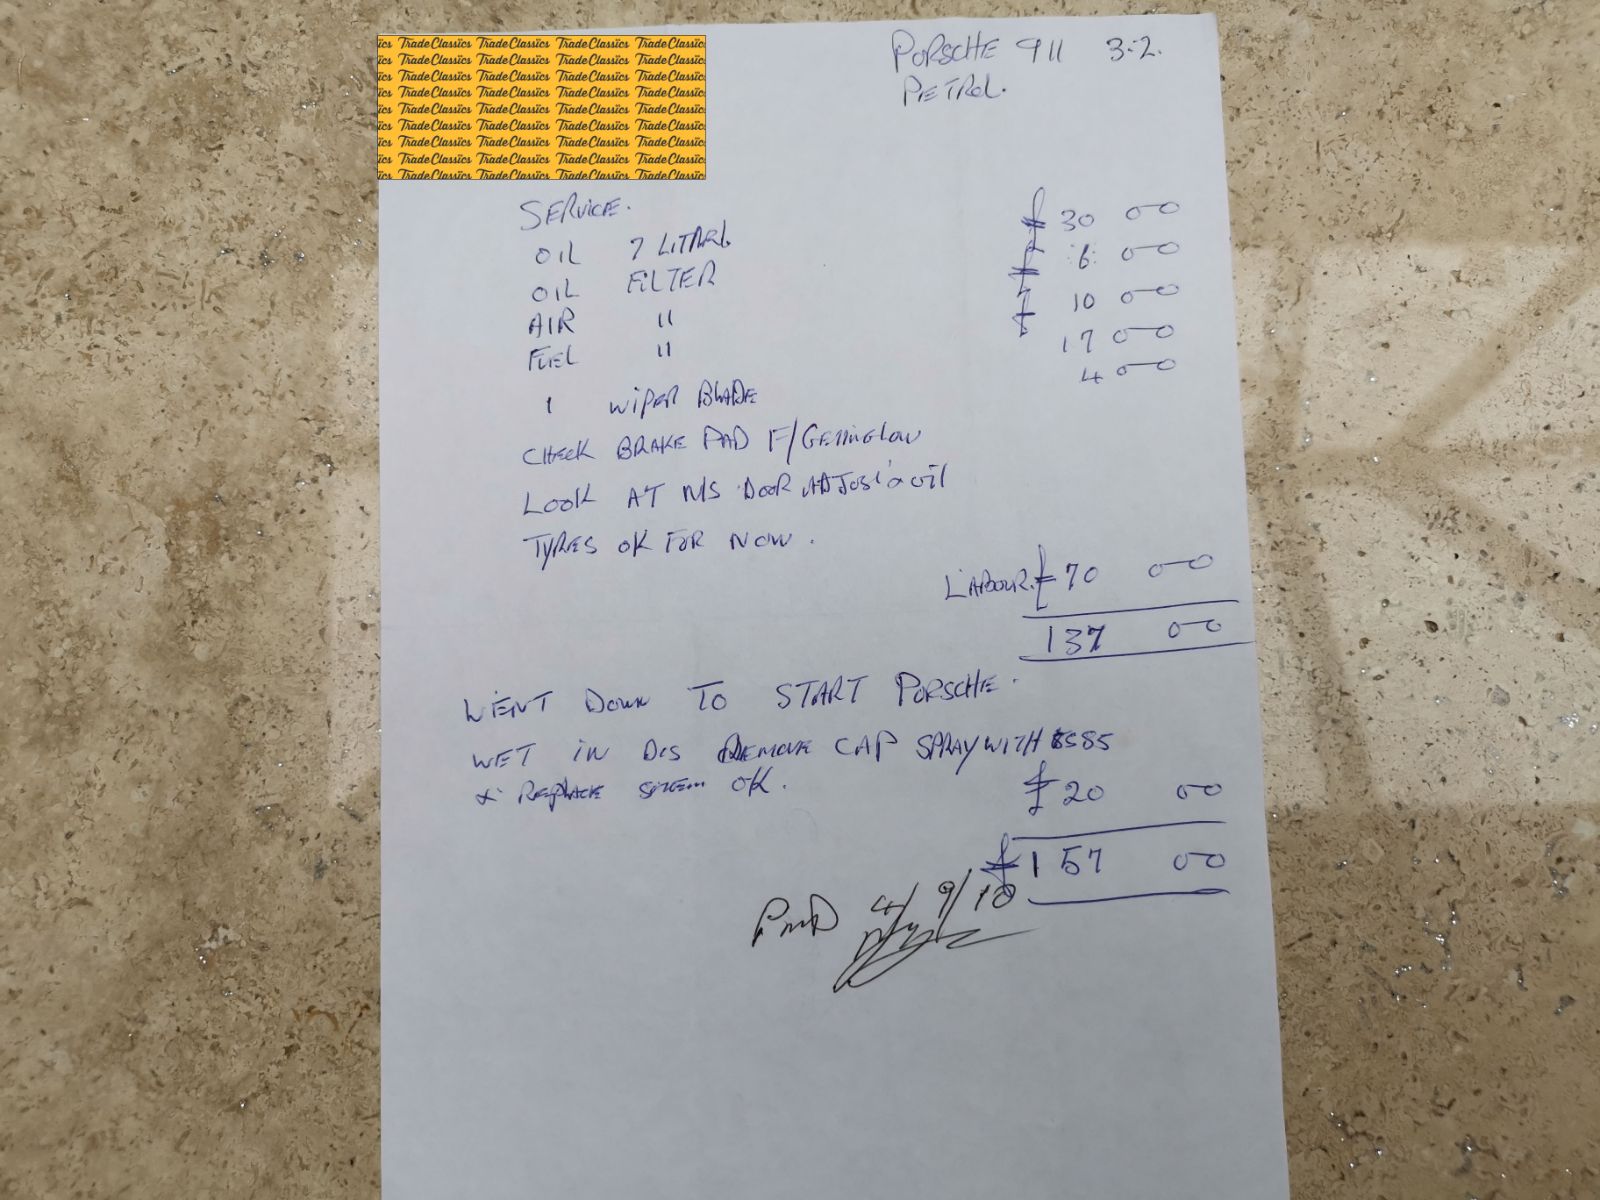 Trade Classics Trade Classics Trade Classics Trade Classics
PORSCHE 911 3.2.
PETROL.
SERVICE.
OIL 7 LITRES £ 30 00
OIL FILTER £ 6 00
AIR " £ 10 00
FUEL " 17 00
1 WIPER BLADE 4 00
CHECK BRAKE PAD F/GETTING LOW
LOOK AT N/S DOOR ADJUST & OIL
TYRES OK FOR NOW.
LABOUR. £ 70 00
137 00
WENT DOWN TO START PORSCHE.
WET IN DIS REMOVE CAP SPRAY WITH
& REPLACE OK.
£ 20 00
£ 157 00
PAID 4/9/10